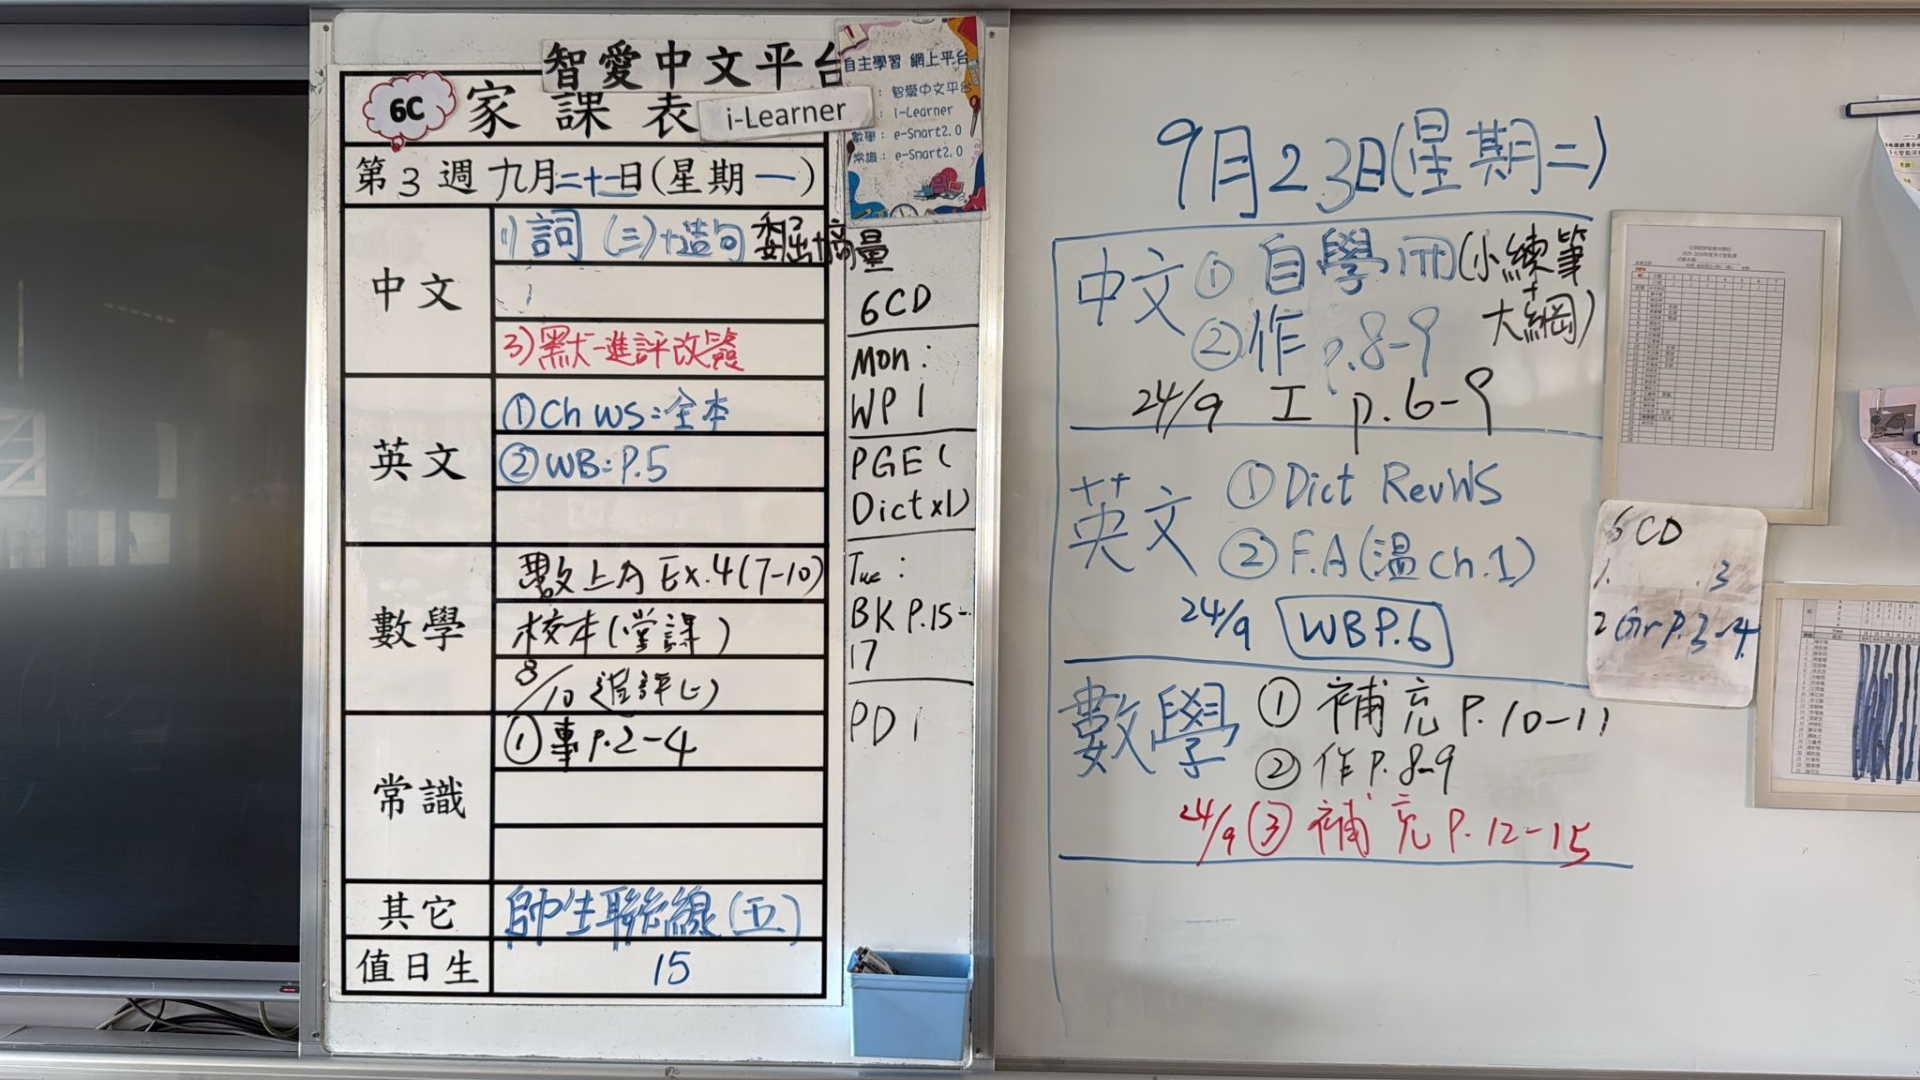 智愛中文平台
6C 家課表 i-Learner
第3週 九月二十一日(星期一)
中文
1)詞(三)+造句
3)默一進評改簽
英文
①Ch WS:全本
②WB:P.5
數學
數上A Ex.4(7-10)
校本(堂課)
8/10 進評(一)
常識
①專P.2-4
其它
師生聯線(五)
值日生
15
自主學習 網上平台
: 智愛中文平台
: i-Learner
數學: e-Smart2.0
常識: e-Smart2.0
量
6CD
Mon:
WP 1
PGE(
Dict x1)
Tue:
BK P.15-
17
PD 1
9月23日(星期二)
中文 ① 自學冊(小練筆
+
大綱)
②作 p.8-9
24/9 工 p.6-9
英文 ①Dict RevWS
②F.A(溫ch.1)
24/9 WBP.6
數學 ① 補充 P.10-11
② 作P.8-9
24/9 ③ 補充 P.12-15
6CD
1. .3
2 Gr P.3-4